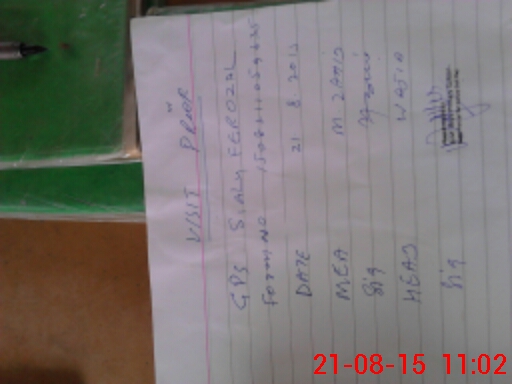 VISIT PROOF
GPS SIALY FEROZAL
Form NO
DATE 21.8.2015
MEA M ZAHID
Sig
HEAD WASIA
Sig
21-08-15 11:02